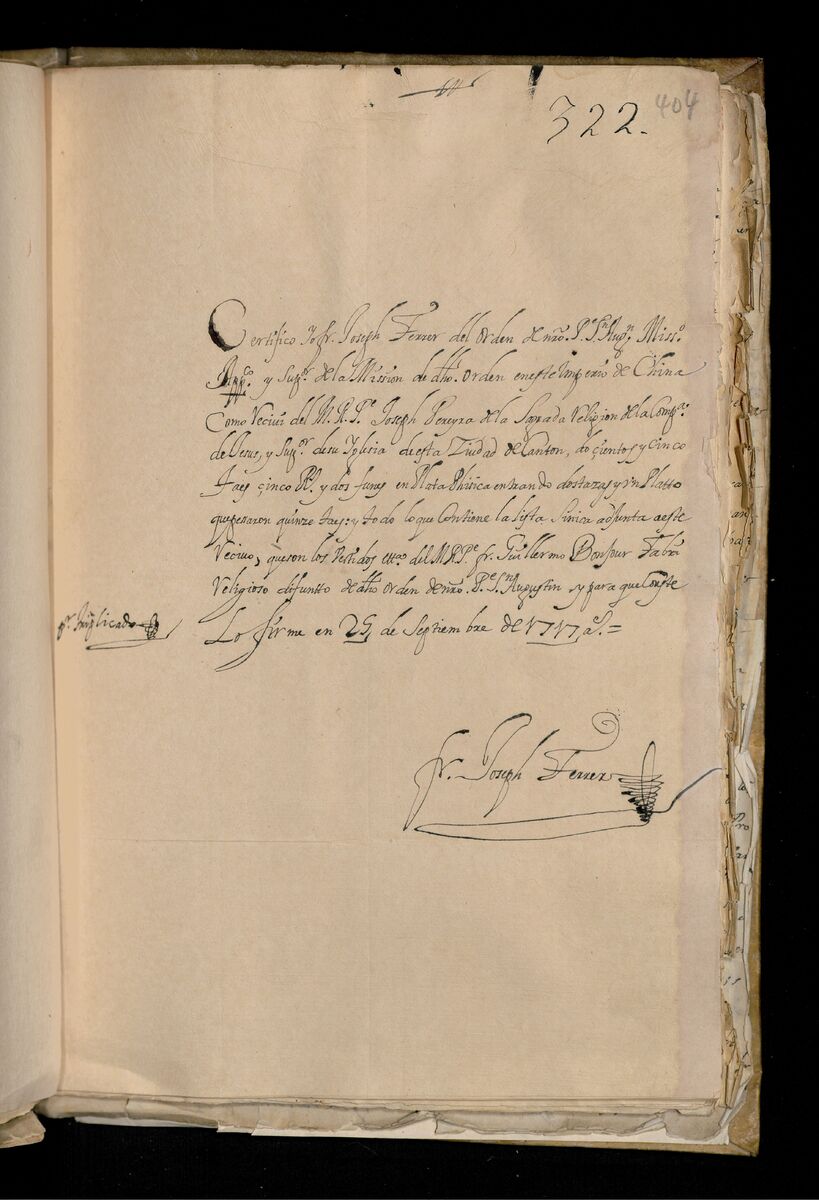 404
322.
Certifico Yo fr. Joseph Ferrer del Orden de nro. Pe. Sn. Augn. Misso.
Appco. y Supr. de la Mission de dho. Orden en este Imperio de China
Como Recivi del M. R. Pe. Joseph Pereyra de la Sagrada Religion de la Compa.
de Jesus, y Supr. de su Iglesia de esta Ziudad de Canton, docientos y cinco
taes cinco Rs. y dos funes en Plata Phisica entrando dos tazas y Vn Platto
que pesaron quinze taes: y todo lo que Contiene la lista Sinica adjunta a este
Recivo, que son los Vestidos del M R Pe. fr. Guillermo Bonjour Fabri
Religioso difuntto de dho Orden de nro. Pe. Sn. Augustin, y para que Conste
Lo firme en 25 de Septiembre de 1717 as. =
pr. triplicado
fr. Joseph Ferrer